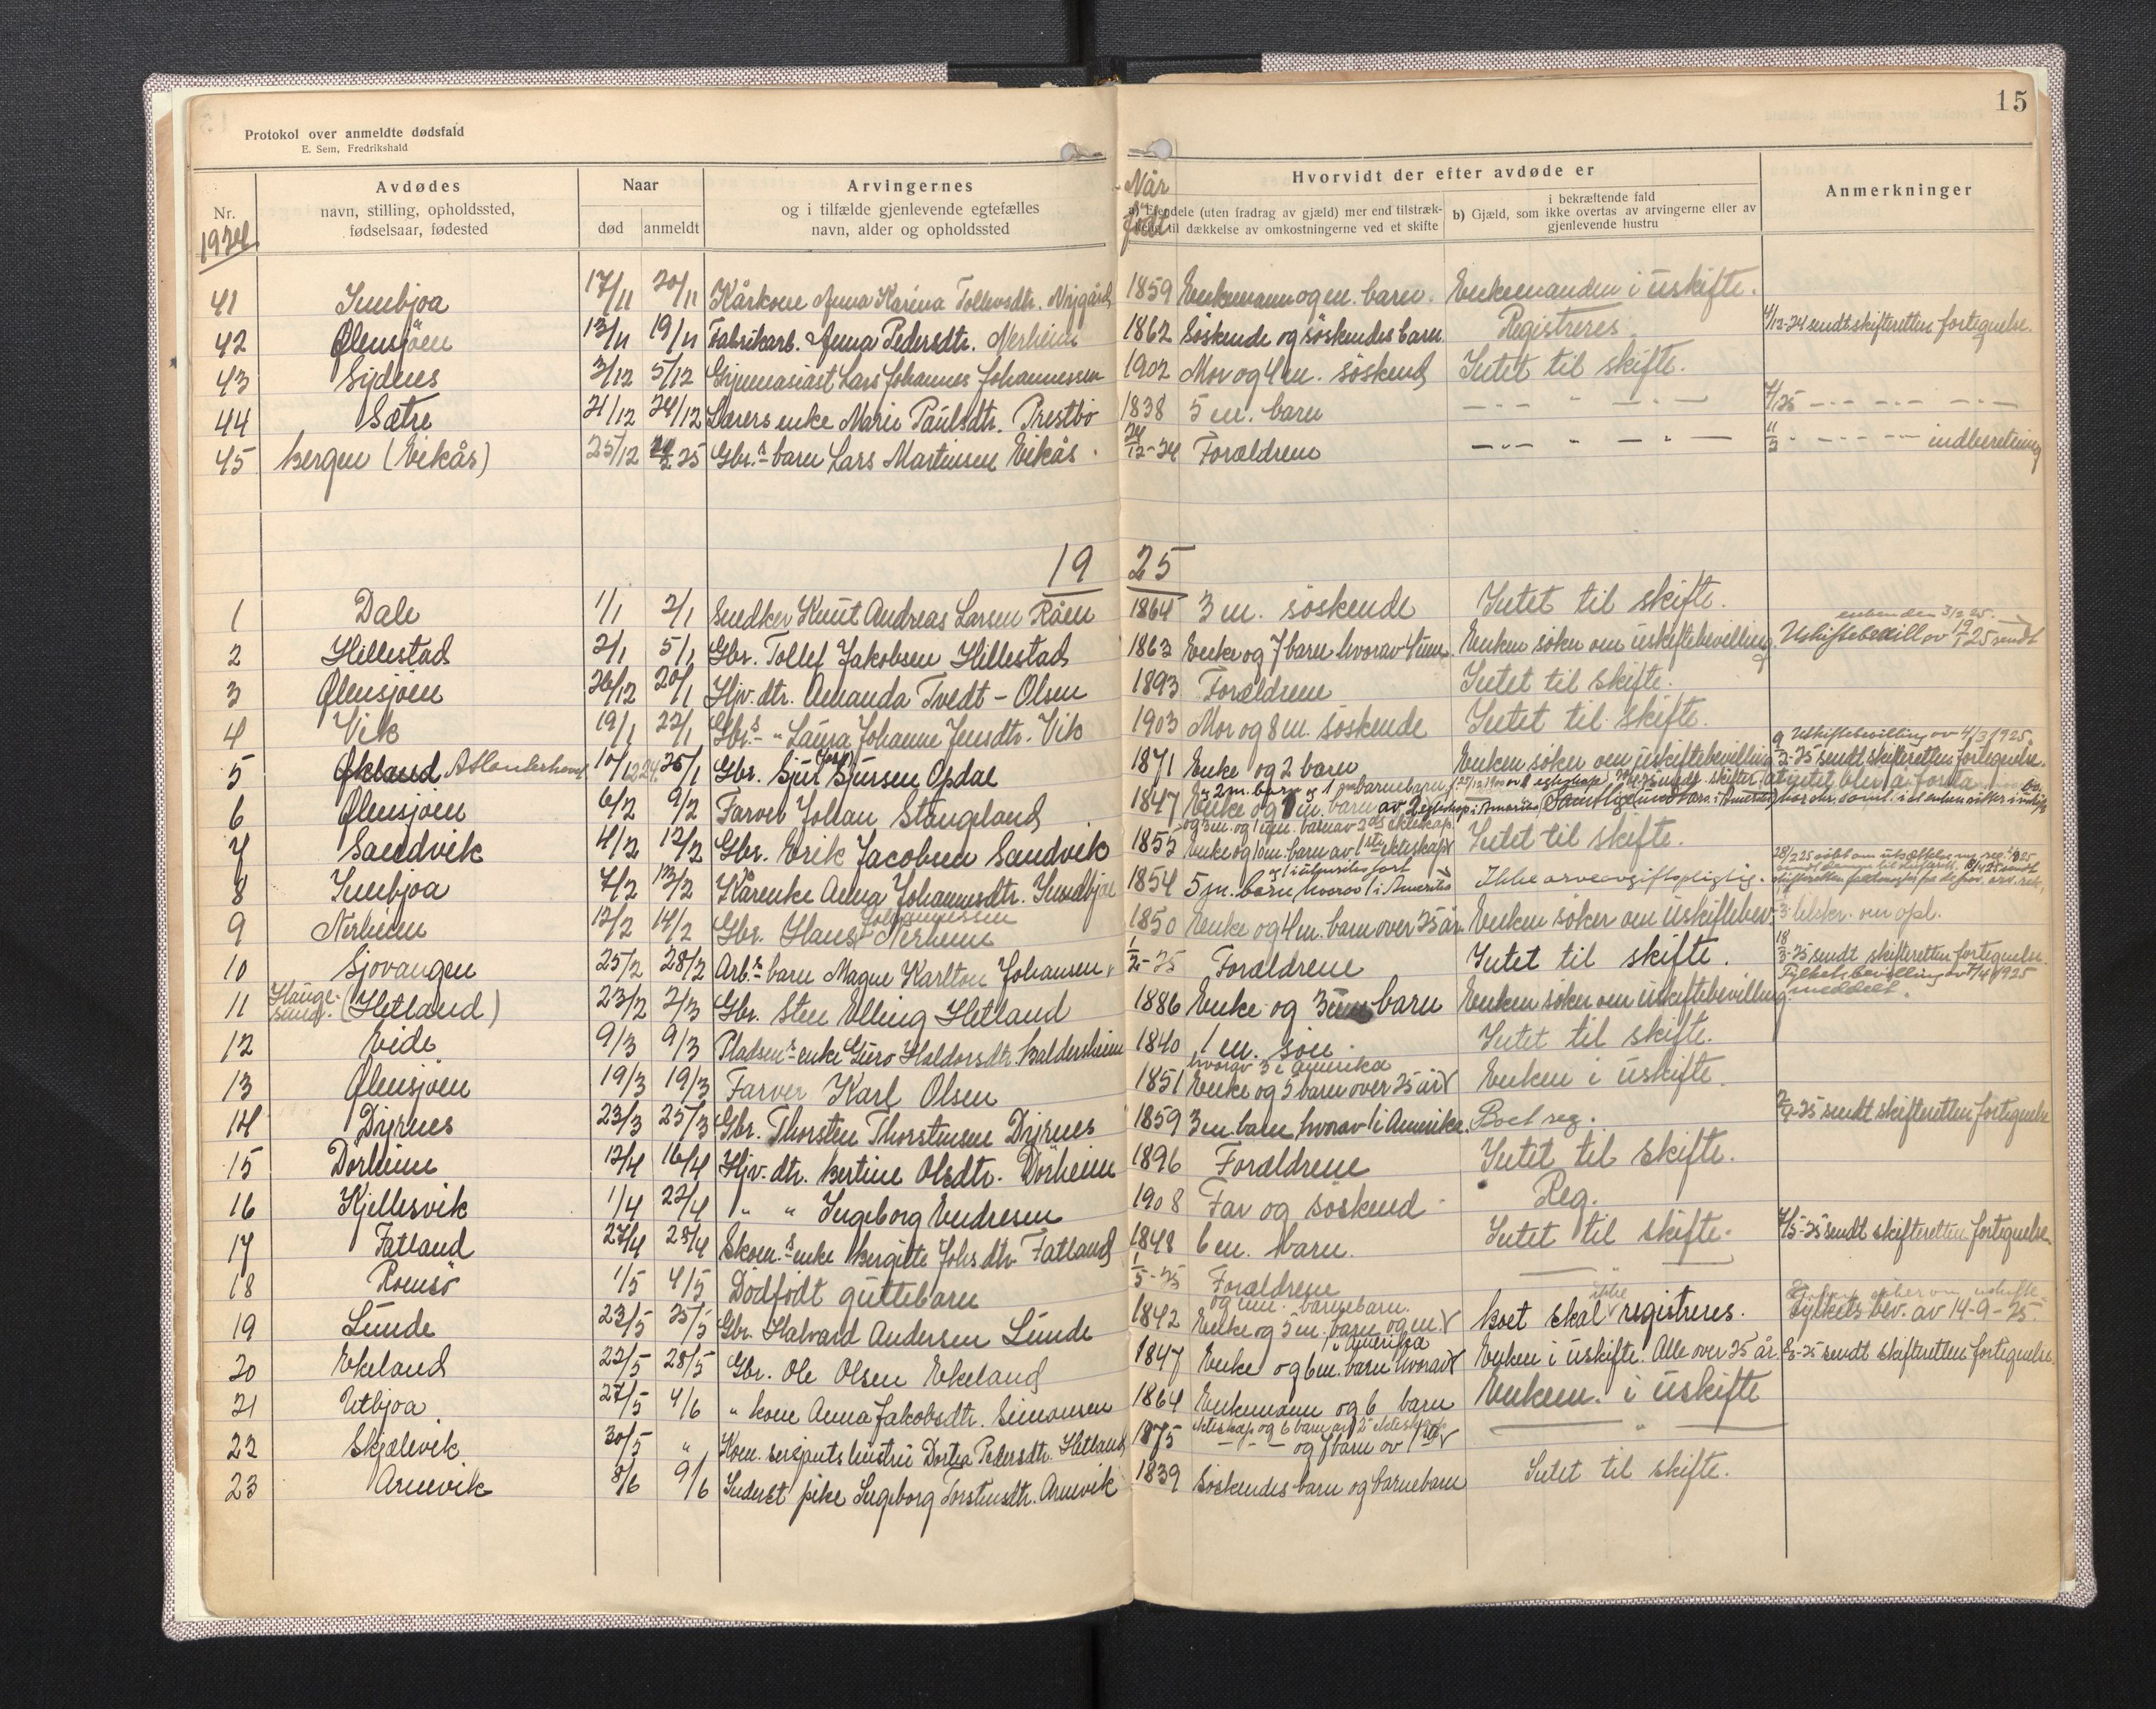 15
Protokol over anmeldte dødsfald
E. Sem, Fredrikshald
Nr. Avdødes navn, stilling, opholdssted, fødselsaar, fødested
Naar død anmeldt
Arvingernes og i tilfælde gjenlevende egtefælles navn, alder og opholdssted
Når født
Hvorvidt der efter avdøde er
a) Eiendele (uten fradrag av gjæld) mer end tilstrækkelig til dækkelse av omkostningerne ved et skifte
i bekræftende fald b) Gjæld, som ikke overtas av arvingerne eller av gjenlevende hustru
Anmerkninger
1924
41 Imbjoa 17/11 20/11 Kårkone Anna Karina Tollevsdtr. Nygård 1859 Enkemann og m. barn. Enkemanden i uskifte.
42 Ølensjøen 13/11 19/11 Fabrikarb. Anna Pedersdtr. Nerheim 1862 Søskende og søskendes barn. Registreres. 4/12-24 sendt skifteretten fortegnelse.
43 Sydnes 3/12 5/12 Gymnasiast Lars Johannes Johannessen 1902 Mor og 4 m. søskend Intet til skifte.
44 Sætre 21/12 24/12 Lærers enke Marie Paulsdtr. Prestbø 1838 5 m. barn — " — 7/1 25 — — —
45 Bergen (Eikås) 25/12 25 Gbr.s barn Lars Martinsen Eikås. 24/12-24 Forældrene — " — 11/2 — — — indberetning
19 25
1 Dale 1/1 2/1 Snedker Knut Andreas Larsen Røen 1864 3 m. søskende Intet til skifte.
2 Hillestad 2/1 5/1 Gbr. Tollef Jakobsen Hillestad 1863 Enke og 7 barn hvorav 4 um. Enken søker om uskiftebevilling Uskiftebevill av 19/1 25 sendt enken den 3/2 25.
3 Ølensjøen 26/12 20/1 Hjv. dtr. Amanda Tvedt - Olsen 1893 Forældrene Intet til skifte.
4 Vik 19/1 22/1 Gbr.s " Laura Johanne Jensdtr. Vik 1903 Mor og 8 m. søskende Intet til skifte.
5 Økland 10/12 24 25/1 Gbr. Sjur Sjursen Opdal 1871 Enke og 2 barn Enken søker om uskiftebevilling Uskiftebevilling av 4/3 1925. 9/2-25 sendt skifteretten fortegnelse.
6 Ølensjøen 6/2 9/2 Farver Johan Stangeland 1847 Enke og m. barn av 2
7 Sandvik 4/2 12/2 Gbr. Erik Jacobsen Sandvik 1855 Enke og 10 m. barn av 1ste ekteskap og 3 m. og 1 um. barn av 2det ekteskap. Intet til skifte.
8 Imbjoa 7/2 13/2 Kårenke Anna Johannesdtr. 1854 5 m. barn, hvorav 1 i Amerika Ikke arveavgiftspligtig.
9 Nerheim 12/2 14/2 Gbr. Hans Johannessen Nerheim 1850 Enke og 4 m. barn over 25 år. Enken søker om uskiftebev.
10 Sjovangen 25/2 28/2 Arb.s barn Magne Karlton Johansen 1/2-25 Forældrene Intet til skifte. 18/3-25 sendt skifteretten fortegnelse.
11 Haugesund. (Hetland) 23/2 2/3 Gbr. Sten Elling Hetland 1886 Enke og 3 um barn Enken søker om uskiftebevilling. Fylkets bevilling av 7/4 1925 meddelt.
12 Eide 9/3 9/3 Pladsm.s enke Guro Haldorsdtr. Baldersheim 1840 1 m. søn. Intet til skifte.
13 Ølensjøen 19/3 19/3 Farver Karl Olsen 1851 Enke og 5 barn over 25 år hvorav 3 i Amerika Enken i uskifte.
14 Dyrnes 23/3 25/3 Gbr. Thorsten Thorstensen Dyrnes 1859 3 m. barn hvorav 1 i Amerika. Boet reg. sendt skifteretten fortegnelse
15 Dörheim 12/4 16/4 Hjv. dtr. Bertine Olsdtr. Dörheim 1896 Forældrene Intet til skifte.
16 Kjellesvik 1/4 22/4 " " Ingeborg Endresen 1908 Far og søskend Reg. 7/5-25 sendt skifteretten fortegnelse.
17 Fatland 27/4 23/4 Skom.s enke Bergitte Johs dtr Fatland 1848 6 m. barn. Intet til skifte.
18 Romsö 1/5 4/5 Dödfödt guttebarn 1/5-25 Forældrene — " —
19 Lunde 23/5 25/5 Gbr. Halvard Andersen Lunde 1842 Enke og 5 m. barn og um. barnebarn. Boet skal ikke registreres. Fylkets bev. av 14-9-25.
20 Ekeland 22/5 28/5 Gbr. Ole Olsen Ekeland 1847 Enke og 6 m. barn hvorav i Amerika Enken i uskifte. Alle over 25 år. sendt skifteretten fortegnelse.
21 Utbjoa 27/5 4/6 " kone Anna Jakobsdtr. Simonsen 1864 Enkemann og 6 barn Enkem. i uskifte
22 Skjælevik 30/5 " Kom. sersjants hustru Dortea Pedersdtr. Hetland 1875 — — — og 7 barn av 1ste ekteskap og 6 barn av 2 ekteskap — " —
23 Arnevik 8/6 9/6 Inderst pike Ingeborg Torstensdtr. Arnevik 1839 Søskendes barn og barnebarn Intet til skifte.